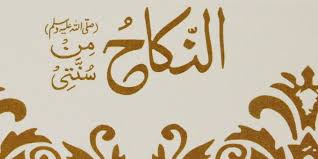 النِّكَاحُ مِنْ سُنَّتِیْ
(صلی اللہ علیہ وسلم)